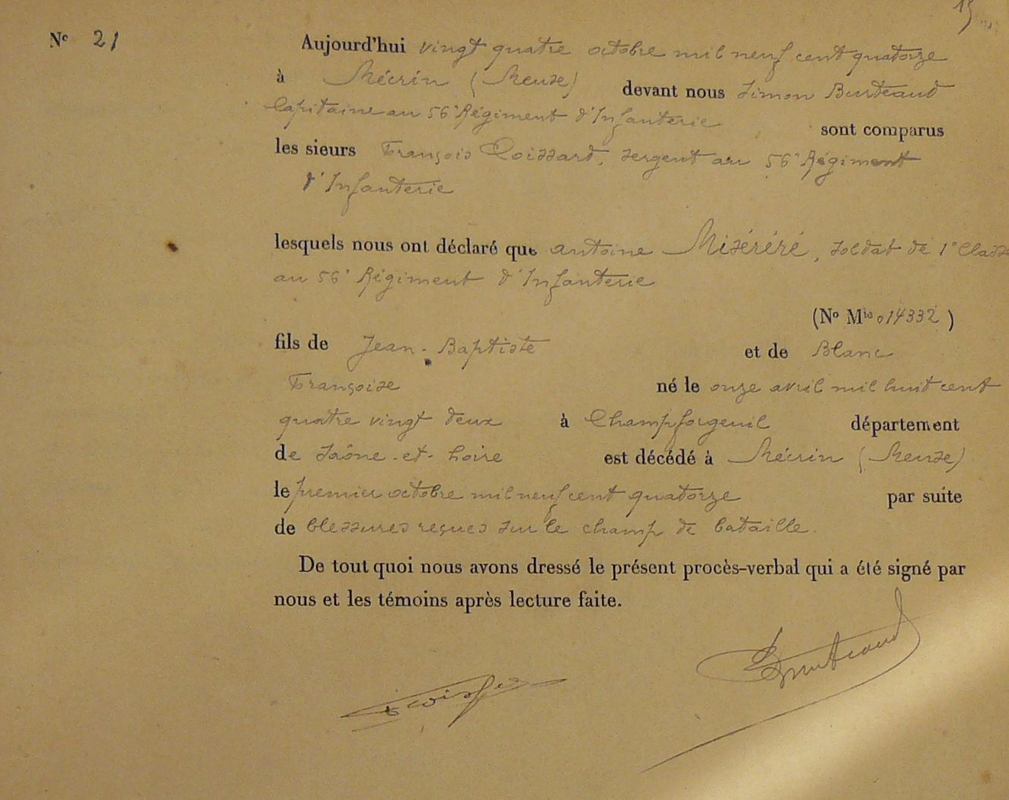 Nº 21
Aujourd'hui vingt quatre octobre mil neuf cent quatorze
à Mécrin (Meuse) devant nous Simon Burteaud
Capitaine au 56e Régiment d'Infanterie sont comparus
les sieurs François Coissard, sergent au 56e Régiment
d'Infanterie
lesquels nous ont déclaré que antoine Miséréré, soldat de 1e Classe
au 56e Régiment d'Infanterie
(Nº Mle 014332)
fils de Jean-Baptiste et de Blanc
Françoise né le onze avril mil huit cent
quatre vingt deux à Champforgeuil département
de Saône-et-Loire est décédé à Mécrin (Meuse)
le premier octobre mil neuf cent quatorze par suite
de blessures reçues sur le champ de bataille.
De tout quoi nous avons dressé le présent procès-verbal qui a été signé par
nous et les témoins après lecture faite.